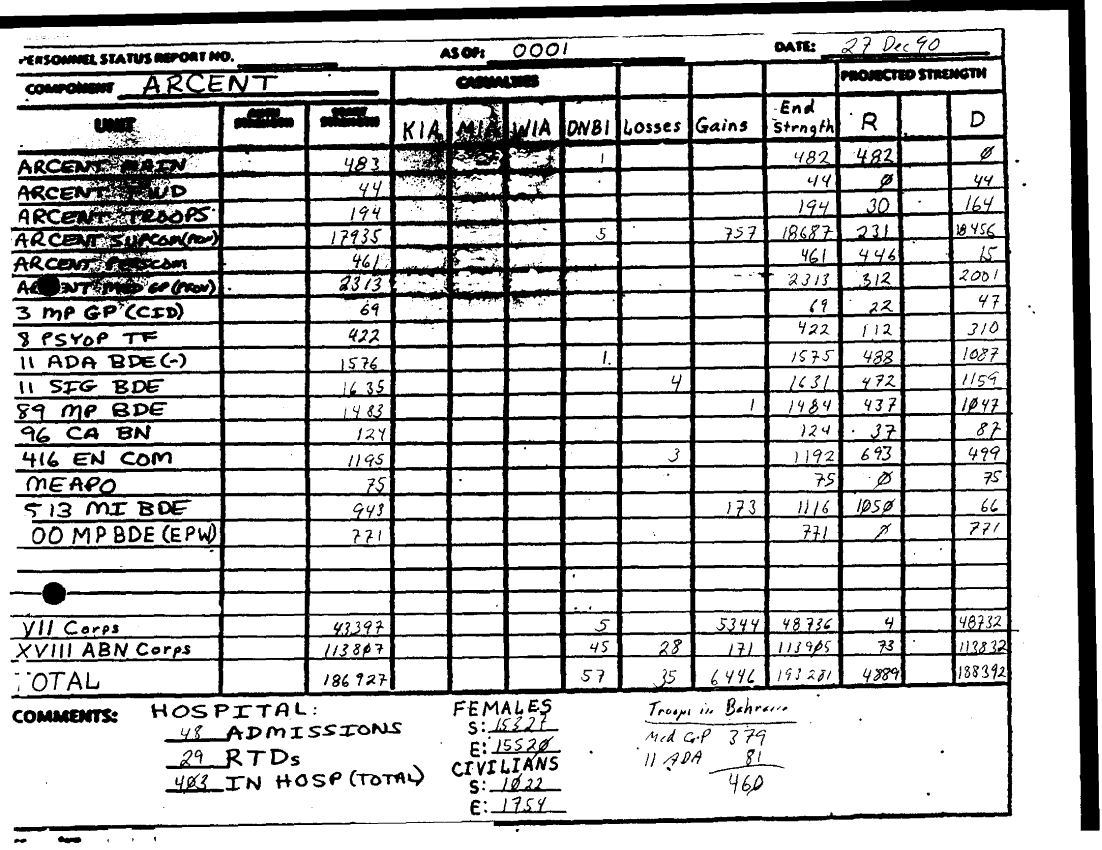 PERSONNEL STATUS REPORT NO. AS OF: 0001 DATE: 27 Dec 90
COMPONENT ARCENT CASUALTIES PROJECTED STRENGTH
UNIT STRENGTH STRENGTH KIA MIA WIA DNBI Losses Gains End Strngth R D
ARCENT MAIN 483 1 482 482 Ø
ARCENT 44 44 Ø 44
ARCENT TROOPS 194 194 30 164
ARCENT SUPCOM (PROV) 17935 5 757 18687 231 18456
ARCENT PERSCOM 461 461 446 15
ARCENT MED GP (PROV) 2313 2313 312 2001
3 MP GP (CID) 69 69 22 47
8 PSYOP TF 422 422 112 310
11 ADA BDE (-) 1576 1. 1575 488 1087
11 SIG BDE 1635 4 1631 472 1159
89 MP BDE 1483 1 1484 437 1Ø47
96 CA BN 124 124 37 87
416 EN COM 1195 3 1192 693 499
MEAPO 75 75 Ø 75
513 MI BDE 943 173 1116 1Ø5Ø 66
00 MP BDE (EPW) 771 771 Ø 771
VII Corps 43397 5 5344 48736 4 48732
XVIII ABN Corps 1138Ø7 45 28 171 1139Ø5 73 113832
TOTAL 186927 57 35 6446 193281 4889 188392
COMMENTS: HOSPITAL: FEMALES Troops in Bahrain
48 ADMISSIONS S: 15327 Med GP 379
29 RTDs E: 1552Ø 11 ADA 81
4Ø3 IN HOSP (TOTAL) CIVILIANS 46Ø
S: 1Ø22
E: 1754